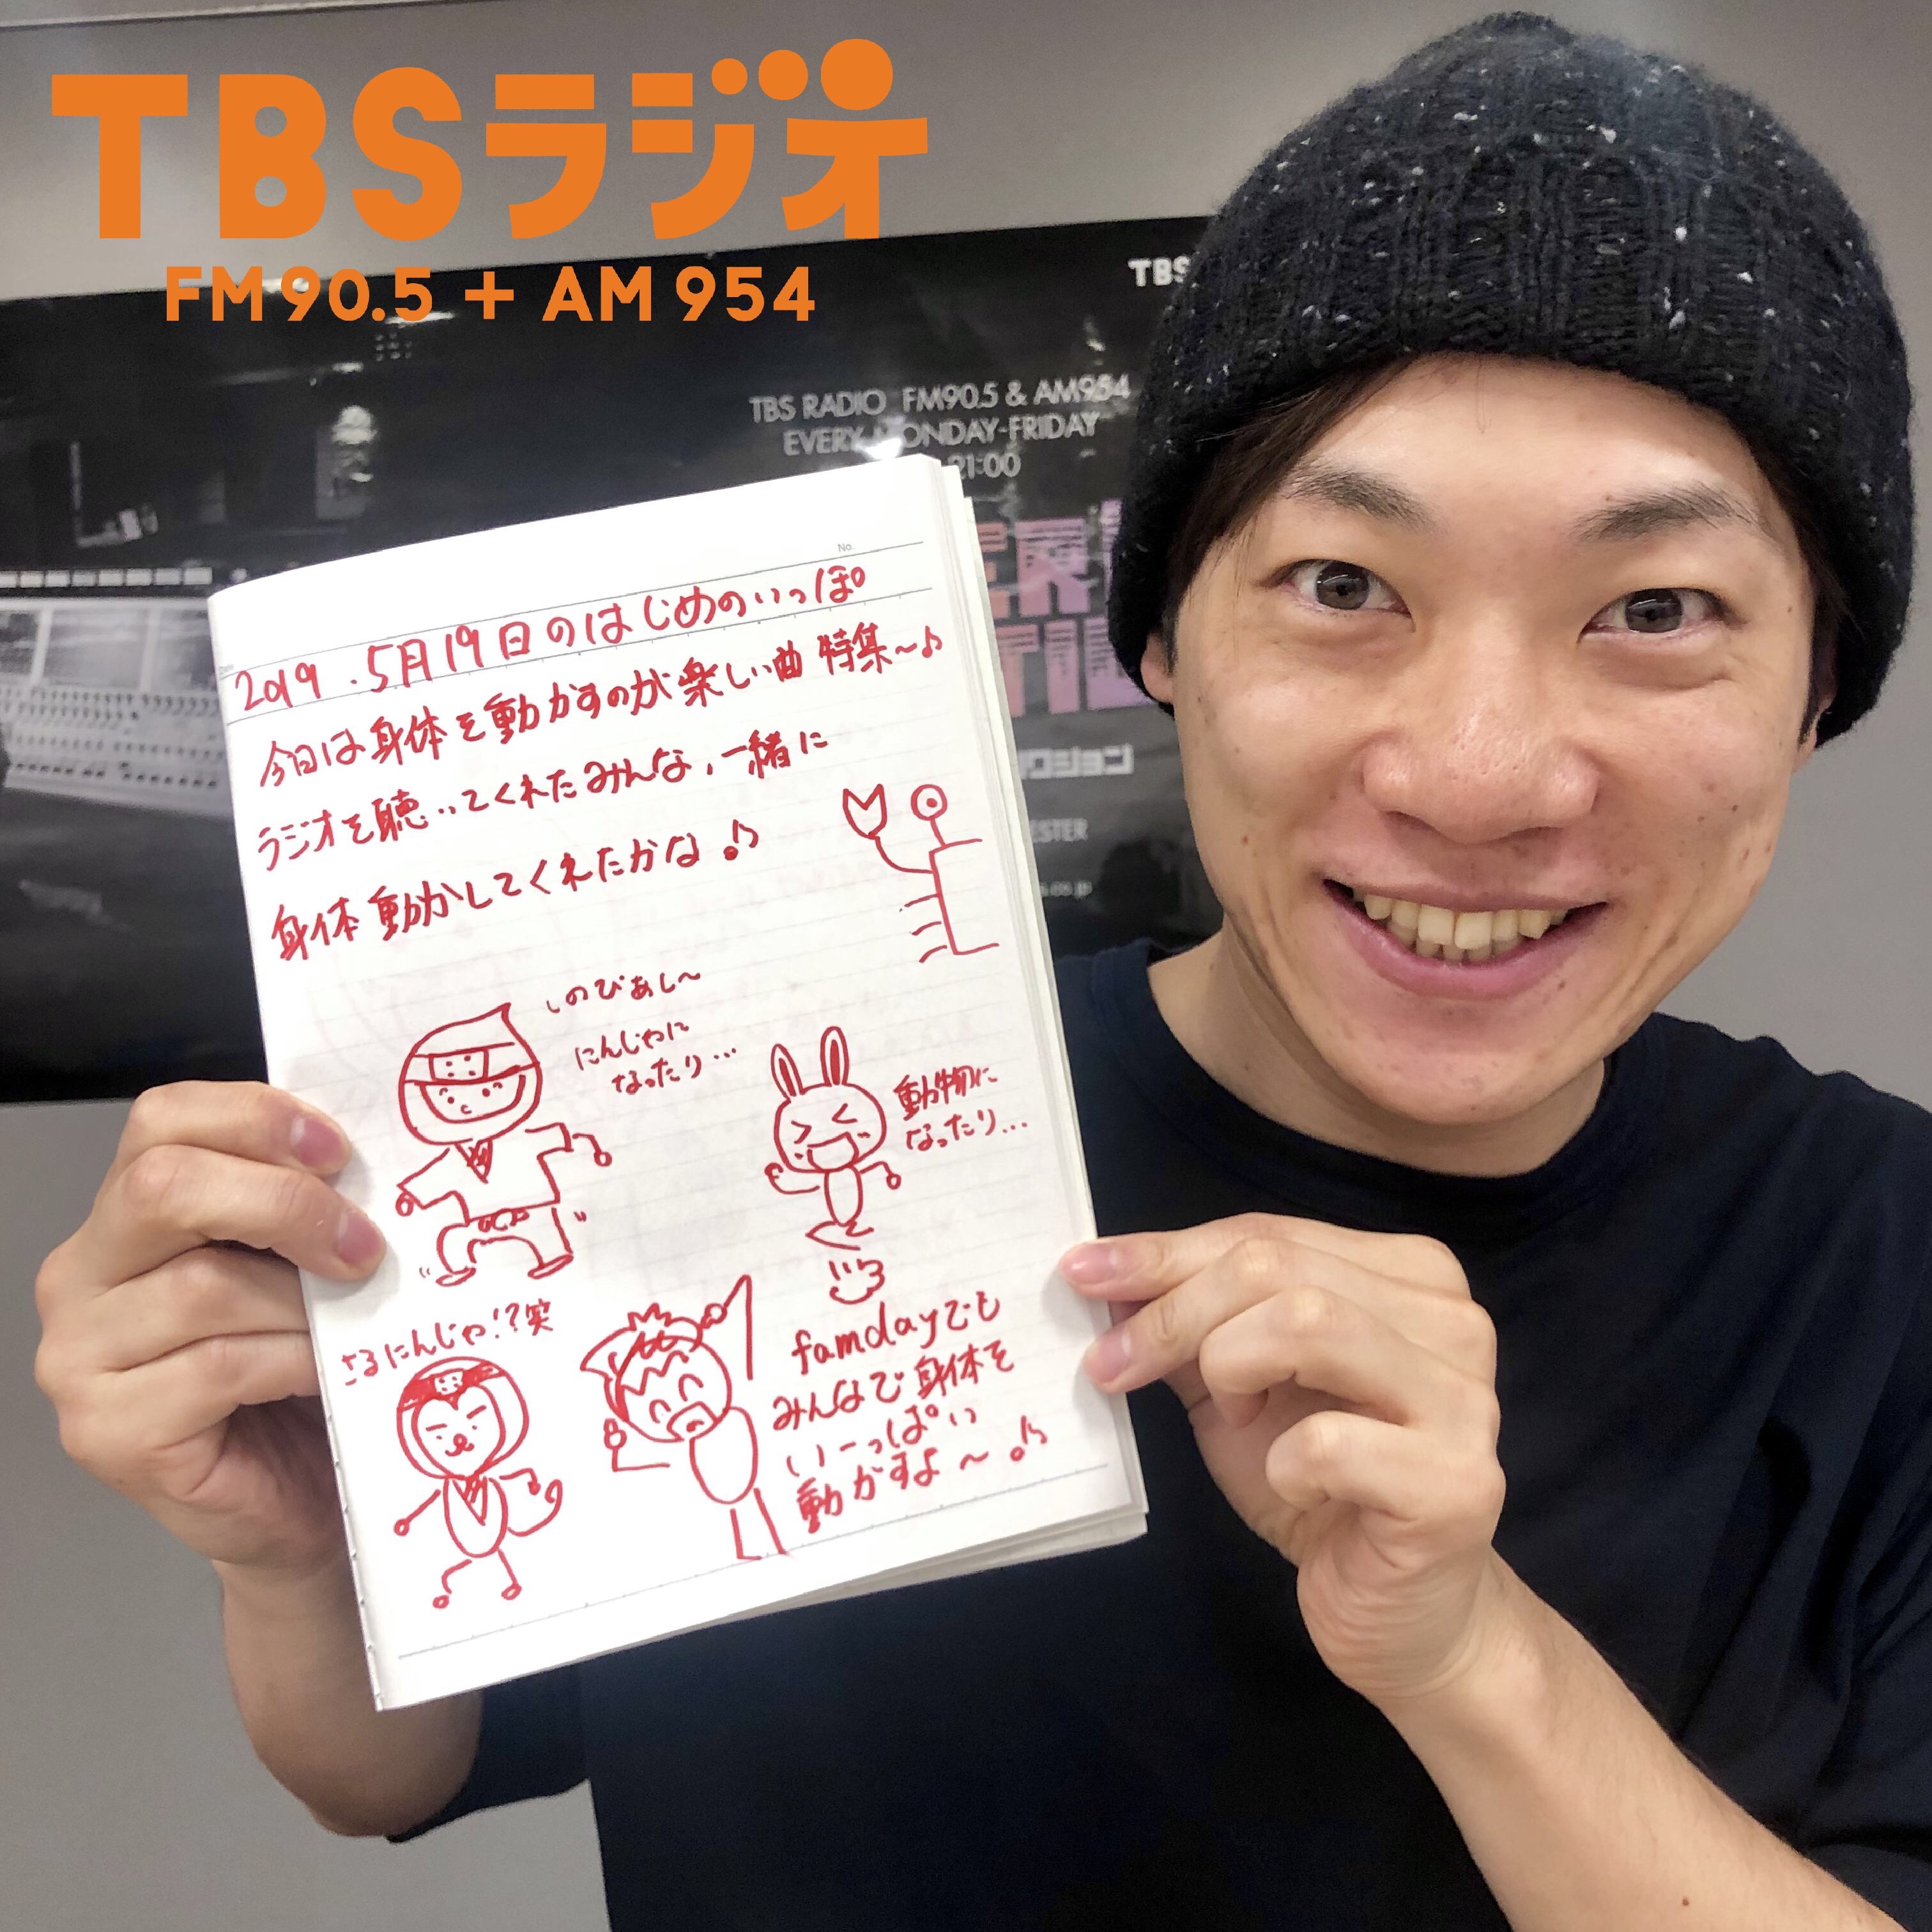 TBSラジオ
FM 90.5 + AM 954
TBS
TBS RADIO FM90.5 & AM954
EVERY MONDAY-FRIDAY
21:00
No.
2019.5月19日のはじめのいっぽ
今日は身体を動かすのが楽しい曲特集〜♪
ラジオを聴いてくれたみんな、一緒に
身体動かしてくれたかな♪
しのびあし〜
にんじゃに
なったり…
動物に
なったり…
さるにんじゃ!?笑
famdayでも
みんなで身体を
いーっぱい
動かすよ〜♪